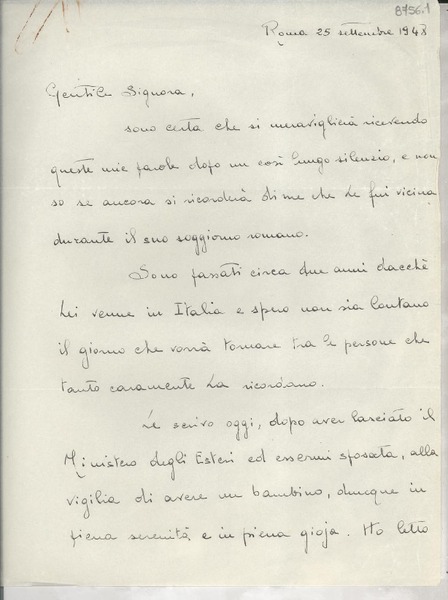 8756.1
Roma 25 settembre 1948
Gentile Signora,
sono certa che si meraviglierà ricevendo
queste mie parole dopo un così lungo silenzio, e non
so se ancora si ricorderà di me che Le fui vicina
durante il suo soggiorno romano.
Sono passati circa due anni dacchè
Lei venne in Italia e spero non sia lontano
il giorno che vorrà tornare tra le persone che
tanto caramente La ricordano.
Le scrivo oggi, dopo aver lasciato il
Ministero degli Esteri ed essermi sposata, alla
vigilia di avere un bambino, dunque in
piena serenità e in piena gioja. Ho letto